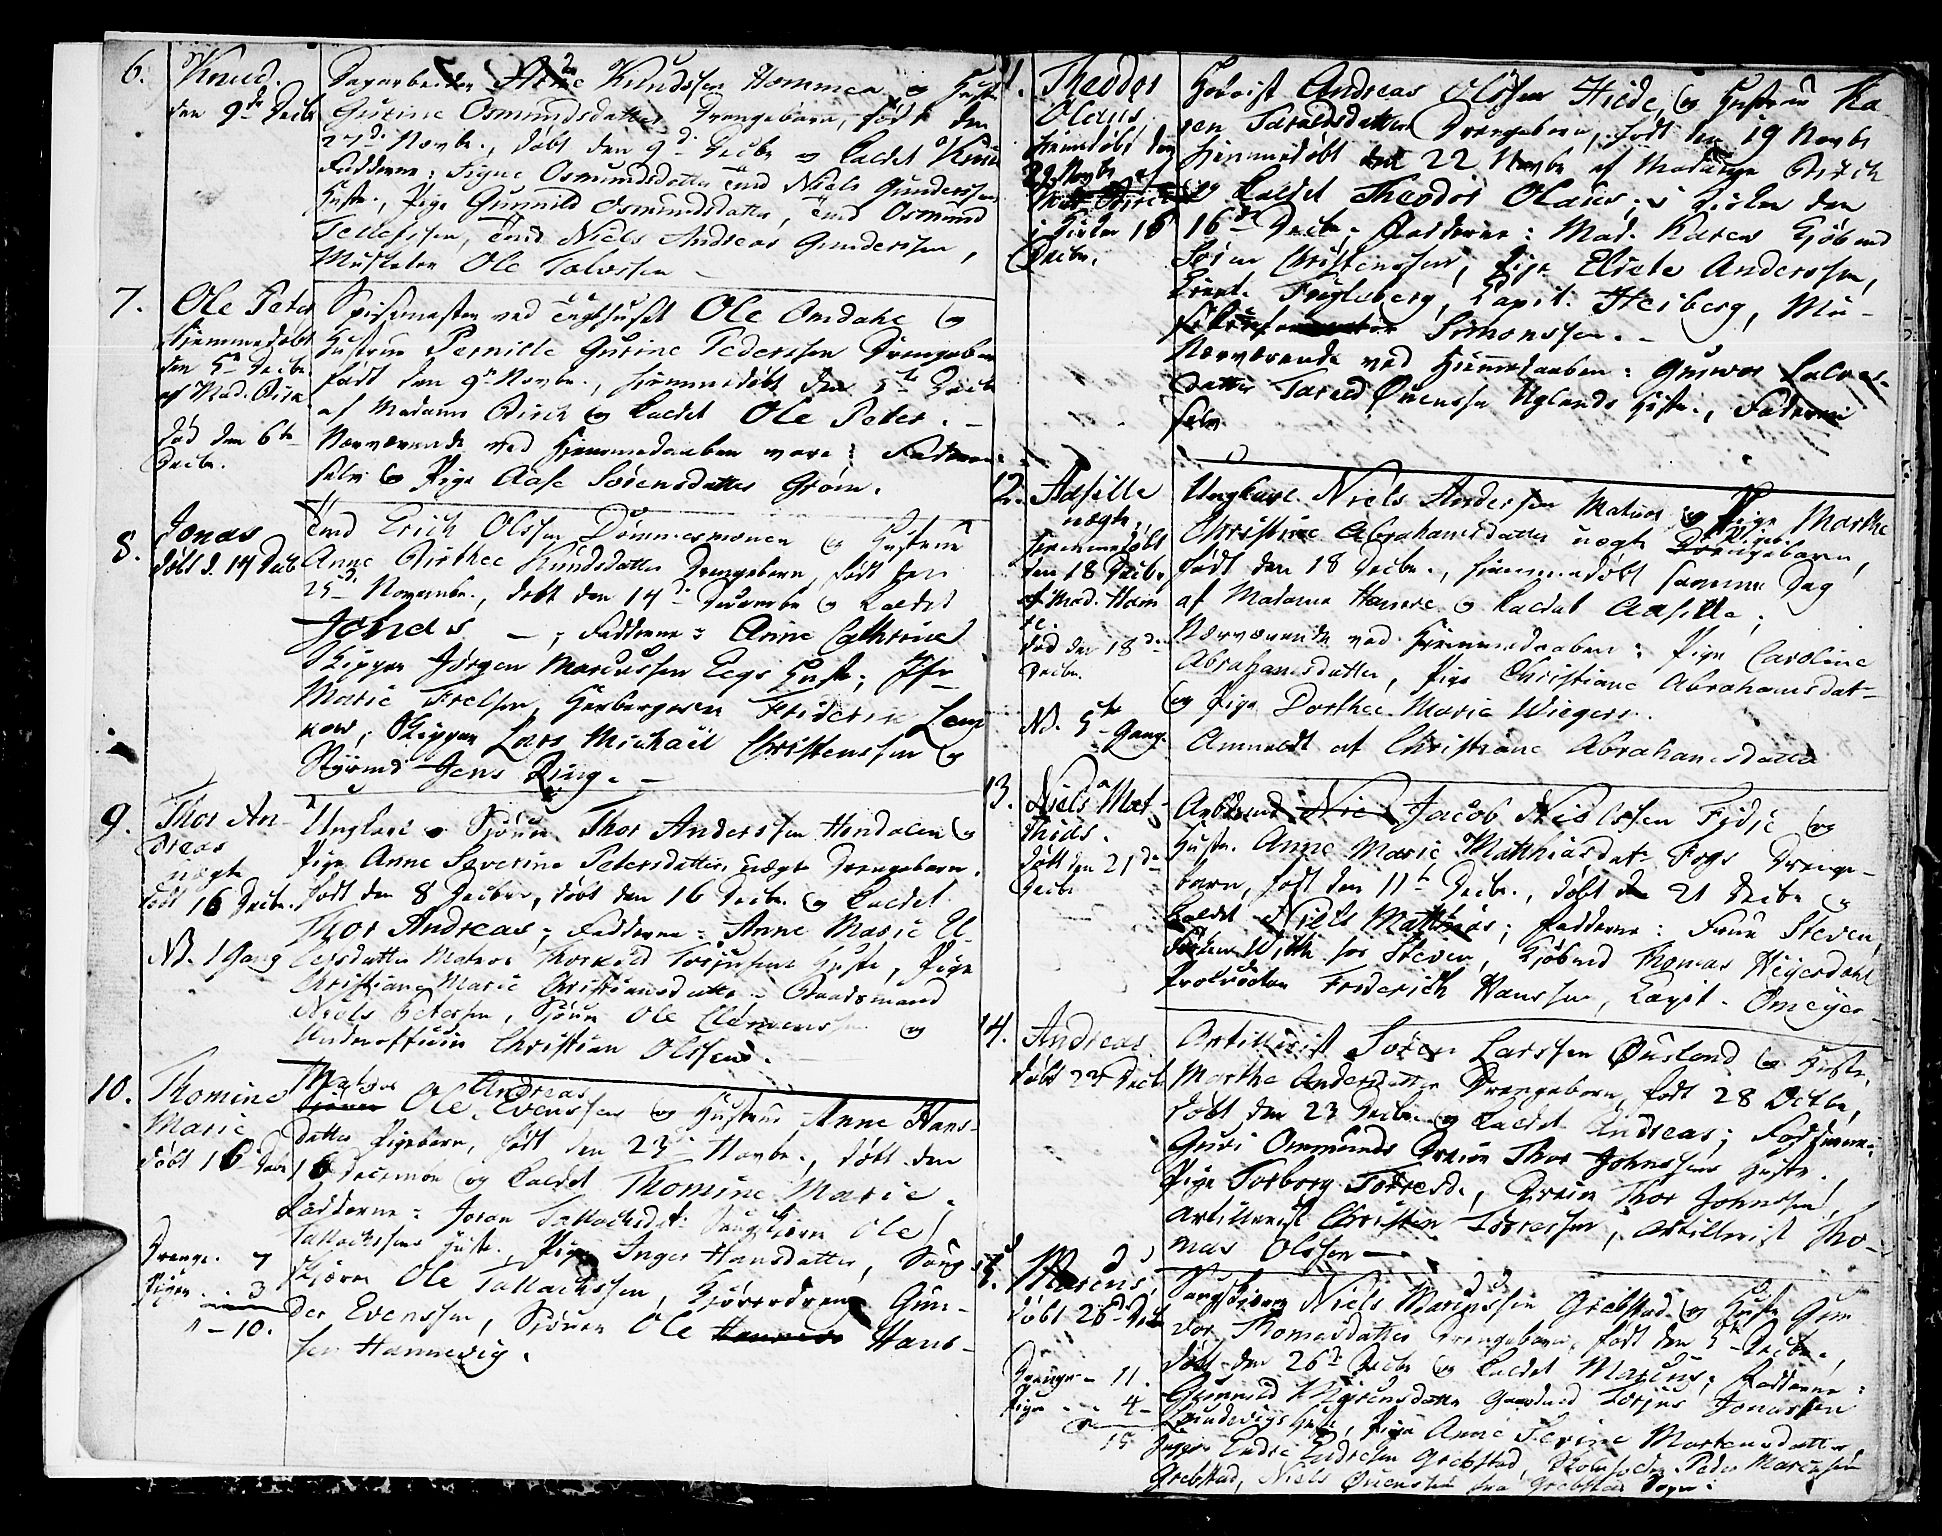 6.
Knud.
den 9de Decbr
Dagarbeider Arne Knudssen Hommen og Hustr
Gurine Osmundsdatter Drengebarn, født den
27d. Novbr., døbt den 9d. Decbr og kaldet Knud
Fadderne: Signe Osmundsdatter Ind Niels Gunderssen
Hustr., Pige Gunnild Osmundsdatter, Ind Osmund
Tellefssen, Ind Niels Andreas Gunderssen,
Ole Talossen
7.
Ole Peter
Hjemmedøbt
den 5te Decbr.
af Mad. Birk
død den 6te
Decbr.
Spisemester ved Tugthuset Ole Omdahl og
Hustrue Pernille Gurine Pederssen Drengebarn
født den 9d. Novbr., hjemmedøbt den 5te Decbr
af Madame Birch og kaldet Ole Peter.
Nærværende ved Hjemmedaaben vare: Faderen
selv og Pige Aase Sørensdatter Grøm.
8.
Jonas
døbt d. 14 Decbr
Ind Erich Olssen Dømmesmonen og Hustrue
Anne Birthee Knudsdatter Drengebarn, født den
25d. Novembr., døbt den 14d. Decembr og kaldet
Jonas; Fadderne: Anne Cathrine
Skipper Jørgen Marcussen Eegs Hustr; Jfr
Marie Frelsen, Frideric Lem
kow, Skipper Lars Michael Christenssen og
Styrmd Jens Ring.
9.
Thor An-
dreas
uægte
døbt 16 Decbr.
NB. 1 Gang
Ungkarl og Sjøur Thor Anderssen Hindalen og
Pige Anne Severine Petersdatter uægte Drengebarn.
født den 8 Decbr, døbt den 16 Decbr. og kaldet
Thor Andreas; Fadderne: Anne Marie U-
lersdatter Matros Thorkild Torjusens Hustr, Pige
Christiane Marie Christiansdatter, Baadsmand
Niels Petersen, Sjøur Ole Clemenssen og
Underofficeer Christian Olssen.
10.
Thomine
Marie
døbt 16 Decbr
Matros Andreas
Ole Evenssen og Hustrue Anne Hans-
datter Pigebarn, født den 23d. Novbr., døbt den
16 Decembr og kaldet Thomine Marie.
Fadderne: Joran Tallachsdat: Ole
Tallachssens Hustr., Pige Inger Hansdatter,
Ole Tallachssen, Gun-
der Evenssen, Sjøuer Ole Hans-
sen Hannevig.
Drenge. 7
Piger. 3
10.
11.
Theodor
Olaus
hjemdøbt den
22 Novbr af
Mad. Birch
i Kirken 16
Decbr.
Andreas Olssen Hilde, og Hustrue Ka
ren Taraldsdatter Drengebarn, født den 19 Novbr
hjemmedøbt den 22 Novbr af Madame Birch
og kaldet Theodor Olaus; i Kirken den
16de Decbr.; Fadderne: Mad. Karen Kjøbmd
Søren Christenssen, Pige Elisete Anderssen,
Lieut. Fuglsberg, Capit. Heiberg, Mu-
Simonssen.
Nærværende ved Hjemedaaben: Gunvor Salves-
datter Tarald Øvenssen Uglands Hustr., Faderen
selv
12.
Aasille
uægte,
hjemmedøbt
den 18 Decbr.
af Mad. Ham
re.
død den 18de
Decbr.
NB. 5te Gang
Ungkarl Niels Andersen Matros og Pige Marthe
Christine Abrahamsdatter uægte Pigeb.
født den 18 Decbr., hjemmedøbt samme Dag
af Madame Hamre og kaldet Aasille;
Nærværende ved Hjemmedaaben: Pige Caroline
Abrahamsdatter, Pige Christiane Abrahamsdat-
og Pige Dorthee Marie Wiegers.
Anmeldt af Christiane Abrahamsdatter
13.
Niels Mat-
thias.
døbt den 21de
Decbr
Arbdmd Jacob Nielssen Fidje og
Hustr. Anne Marie Matthiasdat. Fogs Drenge-
barn, født den 11te Decbr., døbt d. 21 Decbr og
kaldet Niels Matthias; Fadderne: Frue Steven,
Jfr Steven, Kjøbmd Thomas Heyerdahl
Procurator Friderich Hanssen, Capit. Omeyer
14.
Andreas
døbt 23 Decbr
Artillerist Søren Larssen Øusland og Hustr,
Marthe Andersdatter Drengebarn, født 28 Octbr,
døbt den 23 Decbr og kaldet Andreas; Fadderne:
Guri Ommunds Thor Johnssens Hustr.,
Pige Torborg Torresd., Thor Johnssen,
Artillerist Christen Torressen, Artillerist Tho-
mas Olssen
15.
Marcus,
døbt 26de Decbr
Niels Marcussen Grebstad og Hustr Gun
vor Thomasdatter Drengebarn, født den 5te Decbr.,
døbt den 26d. Decbr og kaldet Marcus; Fadderne:
Gunnild Torjus Jonassen
Hustr, Pige Anne Sevine Mortensdatter,
Endre Endresen Grebstad, Peder Marcussen
Grebstad, Niels Øvenssen fra Grebstad Sogn.
Drenge - 11.
Piger - 4
15